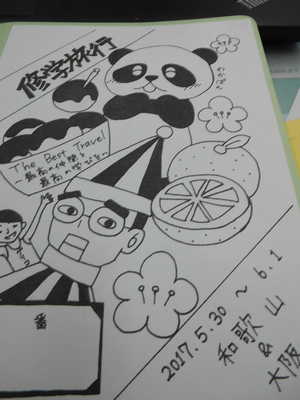 修学旅行
わかぱん
The Best Travel
～最高の仲間と
最高の学びを～
番
2017.5.30 ～ 6.1
和歌山
&
大阪